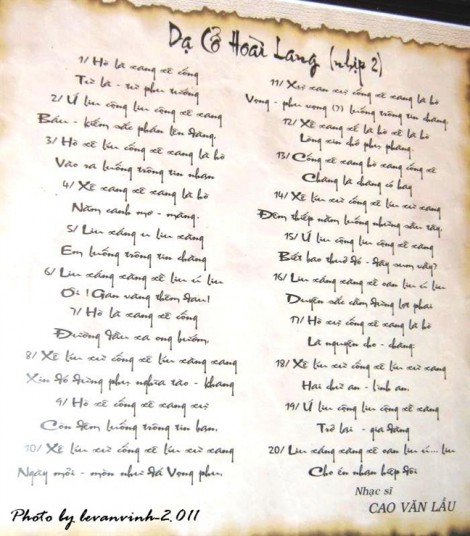 Dạ Cổ Hoài Lang (nhịp 2)
1/ Hò là xang xê cống
Từ là - từ phu tướng
2/ Ú liu cộng liu cộng xê xang
Báu - kiếm sắc phán lên đàng.
3/ Hò xê líu cống xê xang là hò
Vào ra luống trông tin nhạn
4/ Xê xang xê xang là hò
Năm canh mơ - màng.
5/ Liu xáng u liu xàng
Em luống trông tin chàng
6/ Liu xáng xàng xê liu ú liu
Ơi! Gan vàng thêm đau!
7/ Hò là xang xê cống
Đường dầu xa ong bướm.
8/ Xê líu xừ cống xê líu xàng xang
Xin đó đừng phụ nghĩa tào - khang
9/ Hò xê cống xê xang xự
Còn đêm luống trông tin bạn.
10/ Xê líu xừ cống xê líu xừ xang
Ngày mỏi - mòn như đá Vọng phu.
11/ Xự xan xự cống xê xang là hò
Vọng - phu vọng (?) luống trông tin chàng.
12/ Xê xang xê là hò xê là hò
Lòng xin chớ phụ phàng.
13/ Cống xê xang hò xang cống xê
Chàng là chàng có hay
14/ Xê líu xừ cống xê líu xừ xang
Đêm thiếp nằm luống những sầu tây.
15/ Ú liu cộng liu cộng xê xang
Biết bao thuở đó - đây sum vầy?
16/ Liu xáng xàng xê oan liu ú liu
Duyên sắc cầm đừng lợt phai
17/ Hò xự cống xê xang là hò
Là nguyện cho - chàng
18/ Xê líu xừ cống xê líu xừ xang
Hai chữ an - bình an.
19/ Ú liu cộng liu cộng xê xang
Trở lại - gia đàng
20/ Liu xáng xàng xê oan liu ú... liu
Cho én nhạn hiệp đôi
Nhạc sĩ
CAO VĂN LẦU
Photo by levanvinh-2.011